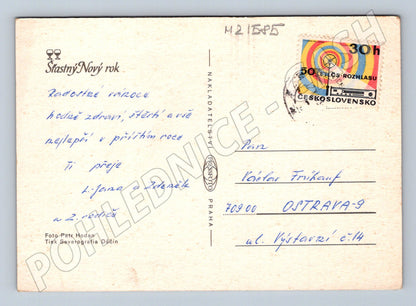 M21585
Šťastný Nový rok
Radostné vánoce
hodně zdraví, štěstí a vše
nejlepší v příštím roce
Ti přeje
L. Jana a Zdeněk
a Z. rodiče
Foto Petr Hodan
Tisk Severografia Děčín
NAKLADATELSTVÍ
PRAHA
30 h
50 LET ČS. ROZHLASU
ČESKOSLOVENSKO
Pan
Václav
70900 OSTRAVA-9
ul. Výstavní č.14
POHLEDNICE